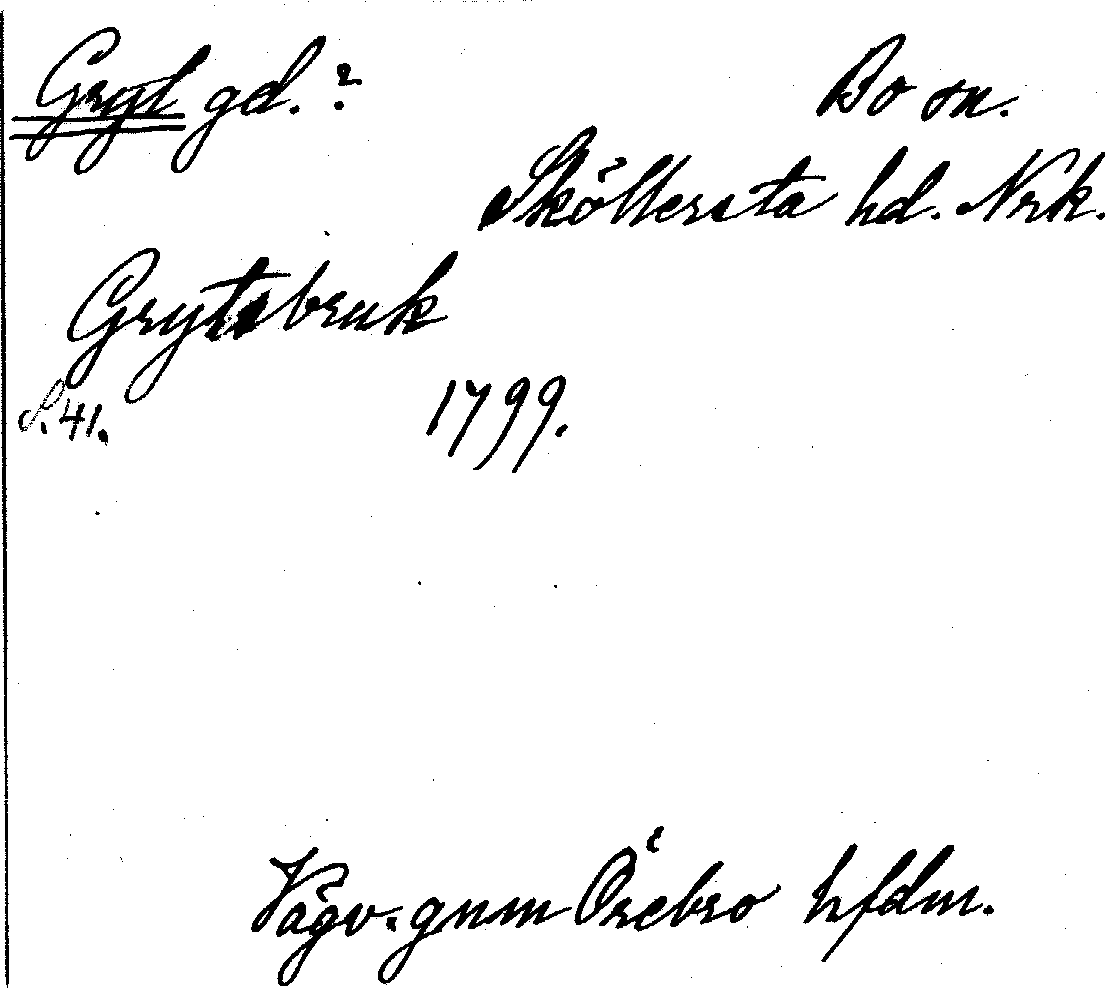 Gryt gd.? Bo sn.
Sköllersta hd. Nrk.
Grytsbruk
S. 41. 1799.
Vägv. gnm Örebro hfdm.